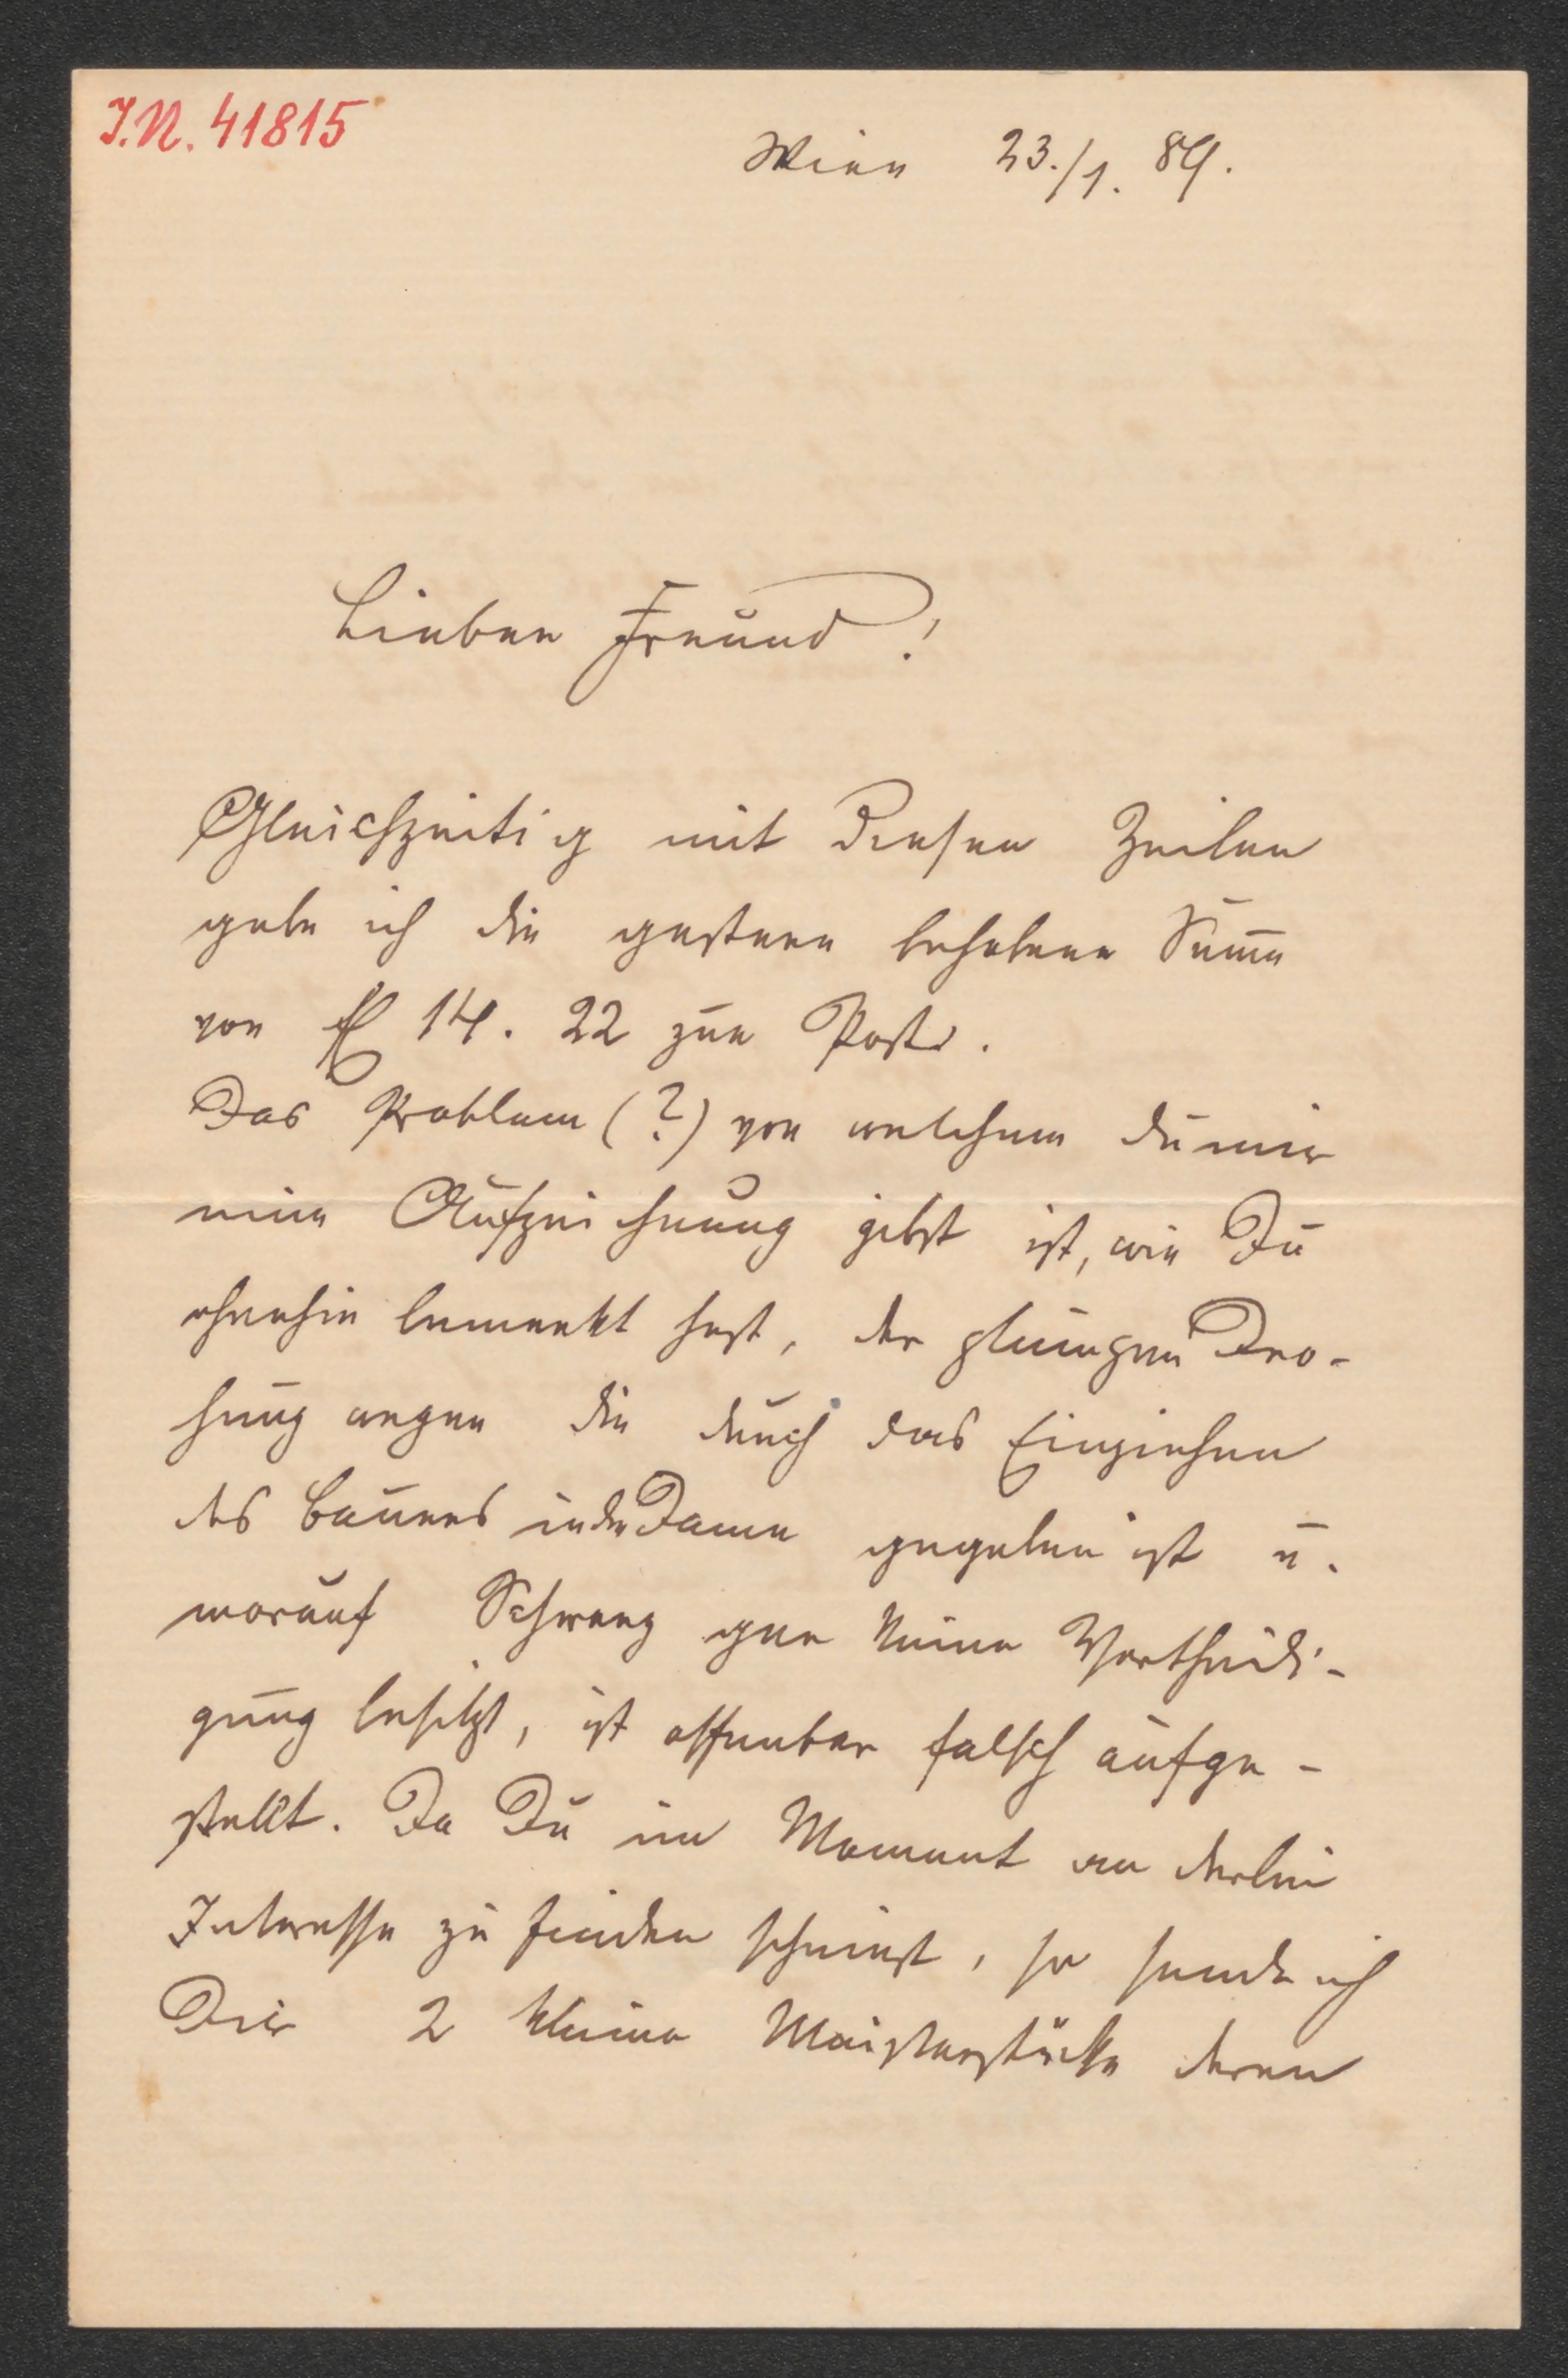 I.N. 41815
Wien 23./1. 84.
Lieber Freund!
Gleichzeitig mit diesen Zeilen
gebe ich die gestern behobene Sum̄e
von fl 14. 22 zur Post.
Das Problem (?) von welchem du mir
eine Aufzeichnung gibst ist, wie Du
ohnehin bemerkt hast, der Dro-
hung wegen die durch das Einziehen
des Bauers in die Dame gegeben ist u.
worauf Schwarz gar keine Vertheidi-
gung besitzt, ist offenbar falsch aufge-
stellt. Da Du im Moment an derlei
Interesse zu finden scheinst, so sende ich
Dir 2 kleine Meisterstücke deren